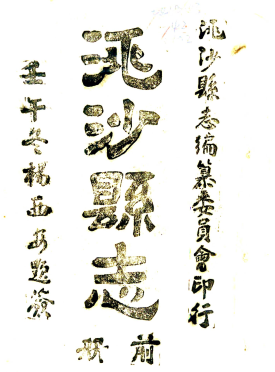 洮沙縣志編纂委員會印行
洮沙縣志
前
壬午冬楊西安題簽